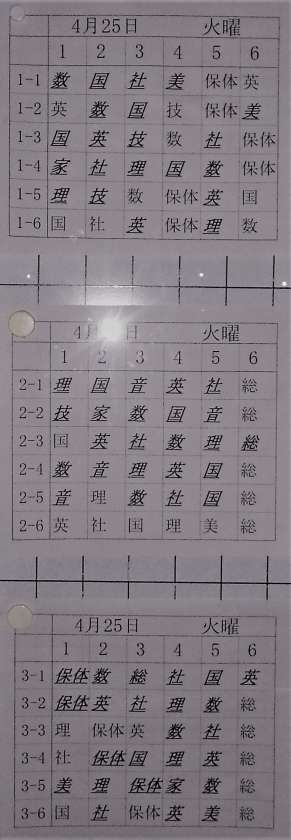 4月25日 火曜
1 2 3 4 5 6
1-1 数 国 社 美 保体 英
1-2 英 数 国 技 保体 美
1-3 国 英 技 数 社 保体
1-4 家 社 理 国 数 保体
1-5 理 技 数 保体 英 国
1-6 国 社 英 保体 理 数
4月 日 火曜
1 2 3 4 5 6
2-1 理 国 音 英 社 総
2-2 技 家 数 国 音 総
2-3 国 英 社 数 理 総
2-4 数 音 理 英 国 総
2-5 音 理 数 社 国 総
2-6 英 社 国 理 美 総
4月25日 火曜
1 2 3 4 5 6
3-1 保体 数 総 社 国 英
3-2 保体 英 社 理 数 総
3-3 理 保体 英 数 社 総
3-4 社 保体 国 理 英 総
3-5 美 理 保体 家 数 総
3-6 国 社 保体 英 美 総